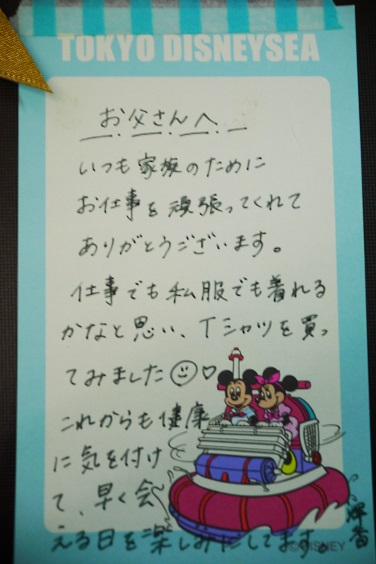 TOKYO DISNEYSEA
お父さんへ
いつも家族のために
お仕事を頑張ってくれて
ありがとうございます。
仕事でも私服でも着れる
かなと思い、Tシャツを買っ
てみました☺♡
これからも健康
に気を付け
て、早く会
える日を楽しみにしてます。
©DISNEY